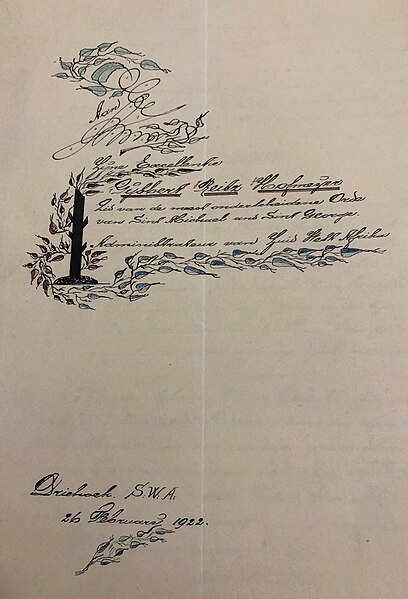 Aan
Zijne Excellentie
Gijsbert Reitz Hofmeyer
Lid van de meest onderscheidene Orde
van Sint Michael and Sint George.
Administrateur van Zuid West Afrika
Driehoek. S.W.A.
26 Februarij 1922.